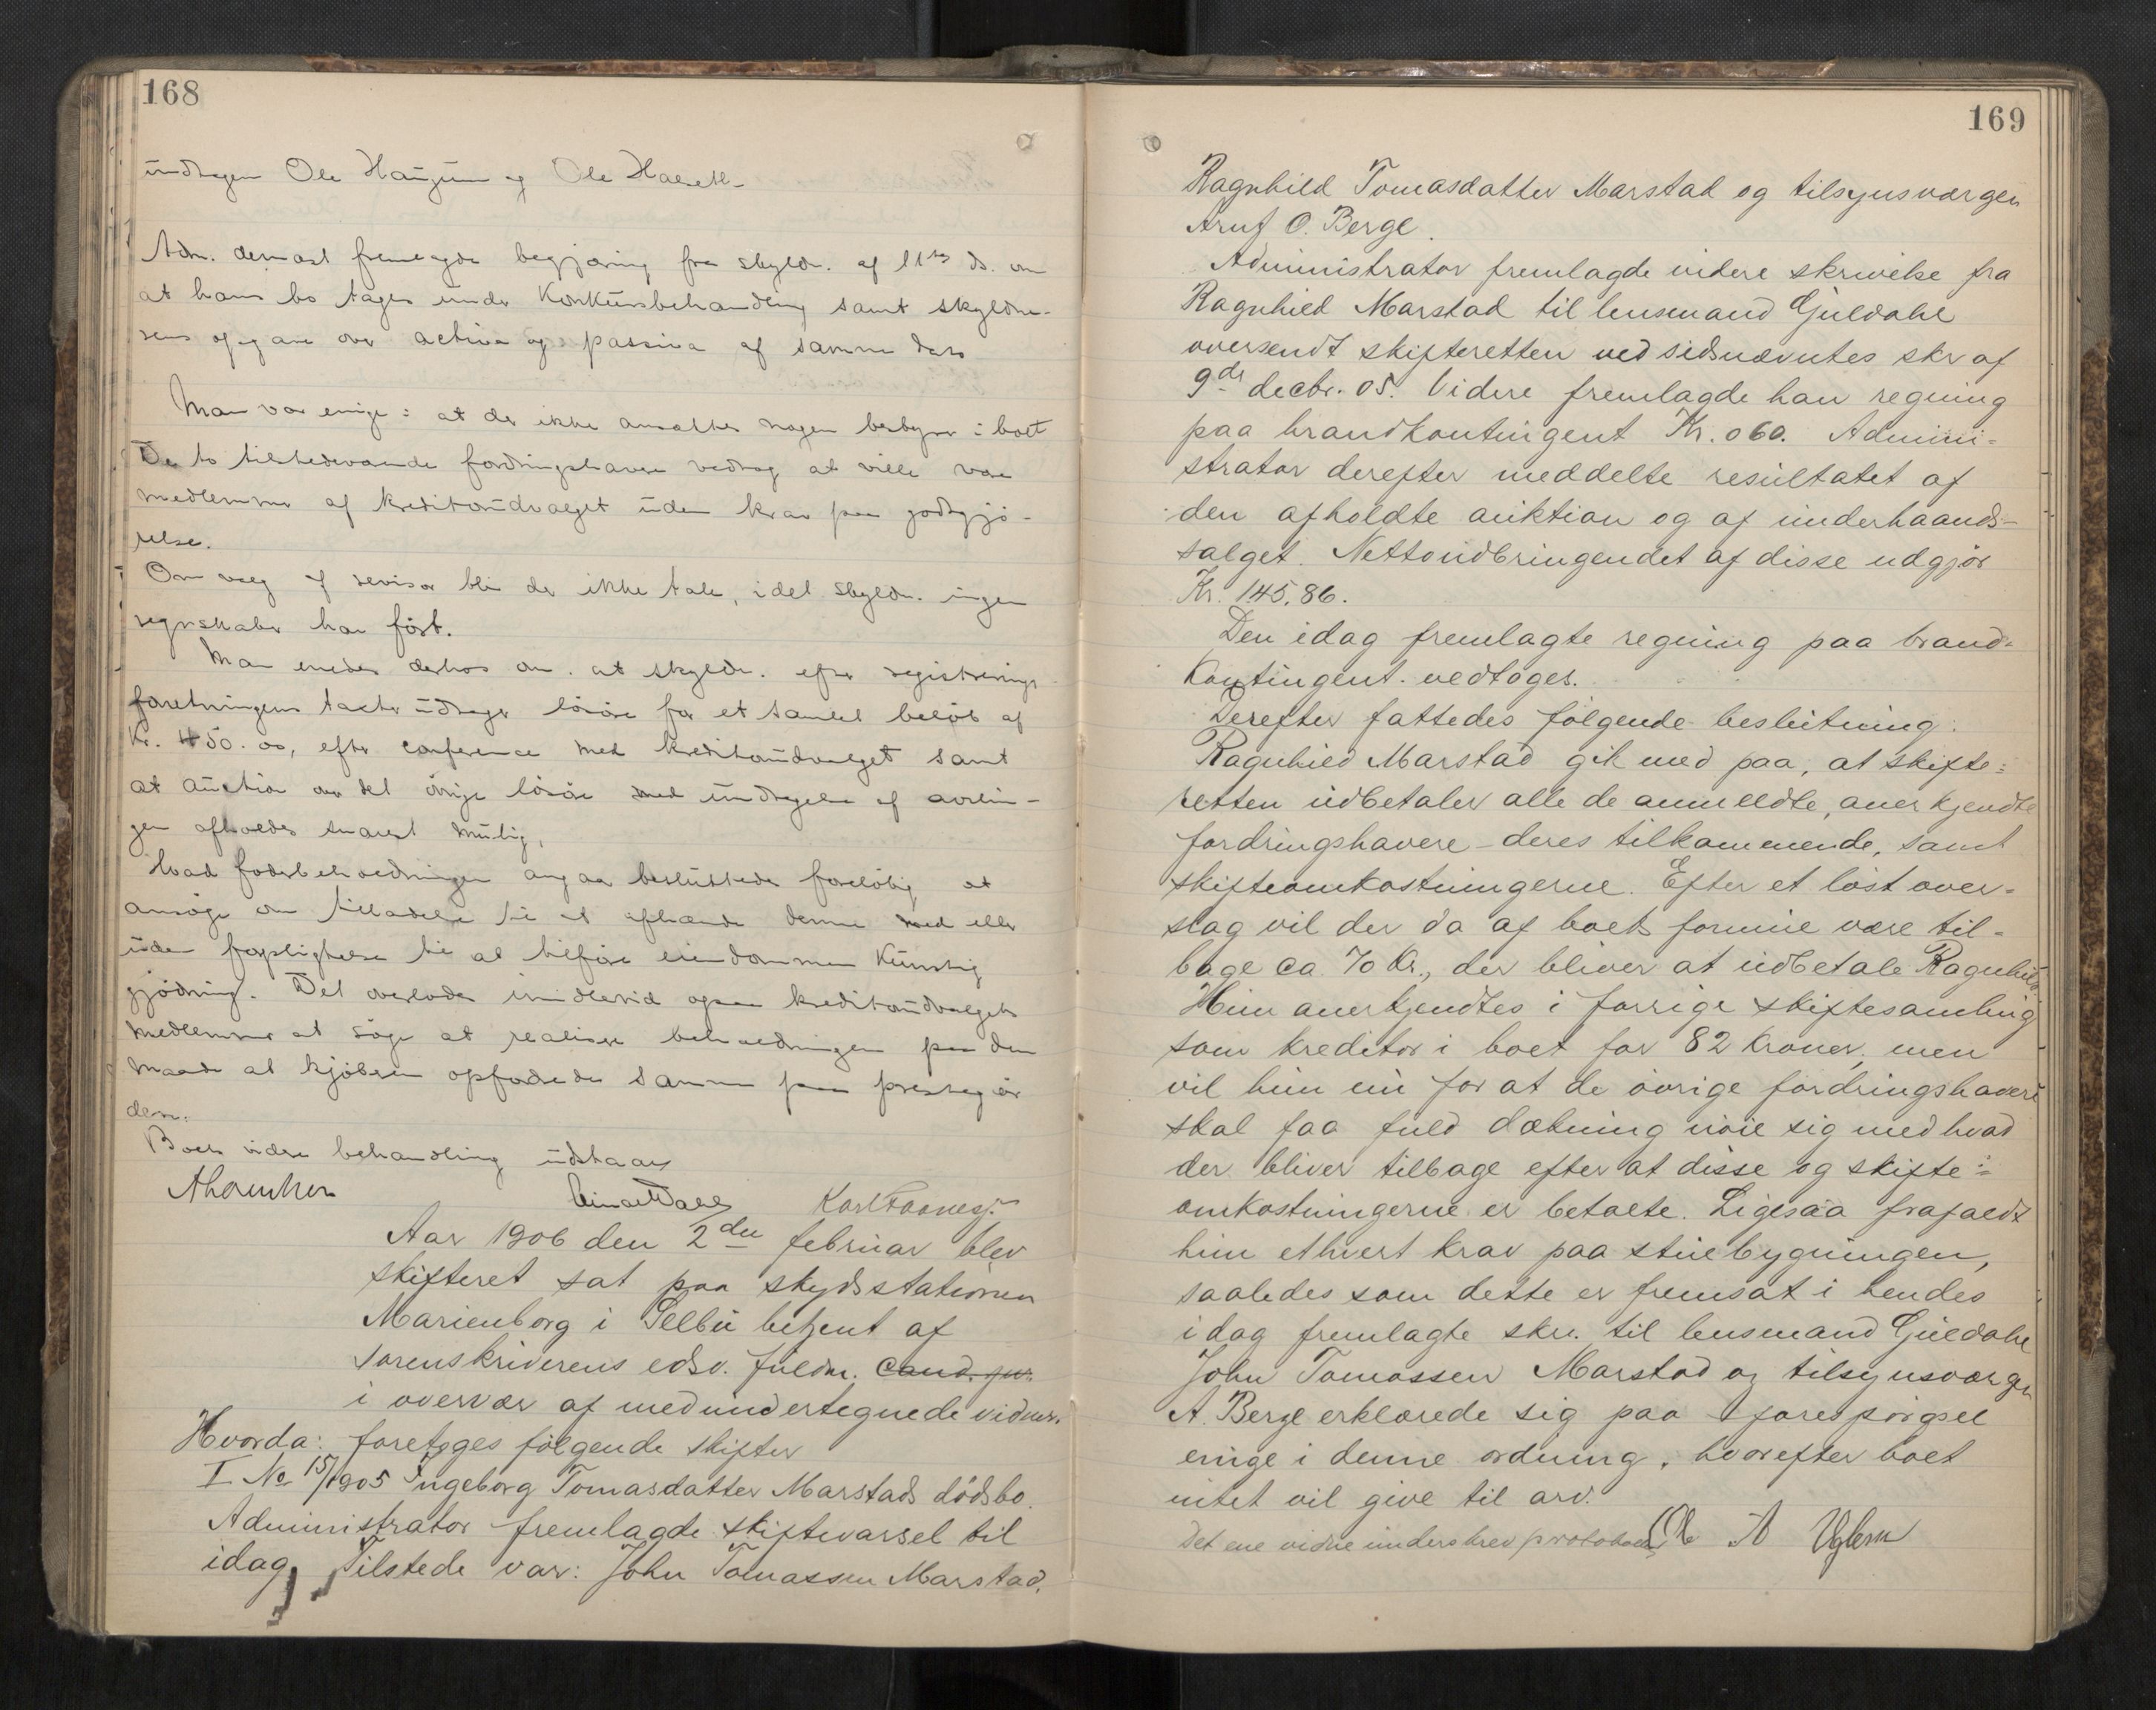 168
undtagen Ole Haugum og Ole Halseth.
Adm. dernæst fremlagde begjæring fra skyldn. af 11te ds. om
at hans bo tages under Konkursbehandling samt skyldne-
rens opgave over activa og passiva af samme dato
Man var enige i at der ikke ansættes nogen bestyrer i boet
De to tilstedeværende fordringshavere vedtog at ville være
medlemmer af kreditorudvalget uden krav paa godtgjø-
relse.
Om valg af revisor blir der ikke tale, idet skyldn. ingen
regnskaber har ført.
Man enedes derhos om at skyldn. efter registrerings-
forretningens takster udtager løsøre for et samlet beløb af
Kr. 450.00, efter conference med kreditorudvalget samt
at auction over det øvrige løsøre med undtagelse af avlin-
gen afholdes snarest mulig,
Hvad foderbeholdningen angaar besluttedes foreløbig at
ansøge om tilladelse til at afhænde denne med eller
uden forpligtelse til at tilføre eiendommen Kunstig
gjødning. Det overlodes imidlertid ogsaa kreditorudvalgets
medlemmer at søge at realisere beholdningen paa den
maade at kjøberen opfodrede samme paa prestegaar
den.
Boets videre behandling udstaar
Karl Kaarvesj.
Aar 1906 den 2den februar blev
skifteret sat paa skydsstationen
Marienborg i Selbu betjent af
sorenskriverens edsv. fuldm. cand. jur.
i overvær af medundertegnede vidner.
Hvorda: foretoges følgende skifter
I No 15/1905 Ingeborg Tomasdatter Marstads dødsbo.
Administrator fremlagde skiftevarsel til
idag. Tilstede var: John Tomassen Marstad,
169
Ragnhild Tomasdatter Marstad og tilsynsværgen
Arnt O. Berge.
Administrator fremlagde videre skrivelse fra
Ragnhild Marstad til lensmand Guldahl
oversendt skifteretten ved sidsnævntes skr af
9de decbr. 05. Videre fremlagde han regning
paa brandkontingent Kr. 0 60. Admini-
strator derefter meddelte resultatet af
den afholdte auktion og af underhaands-
salget. Nettoudbringendet af disse udgjør
Kr. 145,86.
Den idag fremlagte regning paa brand-
Kontingent vedtoges.
Derefter fattedes følgende beslutning:
Ragnhild Marstad gik med paa, at skifte-
retten udbetaler alle de anmeldte, anerkjendte
fordringshavere deres tilkommende, samt
skifteomkostningerne. Efter et løst over-
slag vil der da af boets formue være til-
bage ca. 70 Kr., der bliver at udbetale Ragnhild
Hun anerkjendtes i forrige skiftesamling
som kreditor i boet for 82 kroner, men
vil hun nu for at de øvrige fordringshavere
skal faa fuld dækning nøie sig med hvad
der bliver tilbage efter at disse og skifte-
omkostningerne er betalte. Ligesaa frafaldt
hun ethvert krav paa stuebygningen,
saaledes som dette er fremsat i hendes
idag fremlagte skr. til lensmand Guldahl
John Tomassen Marstad og tilsynsværgen
A. Berge erklærede sig paa forespørgsel
enige i denne ordning, hvorefter boet
intet vil give til arv.
Det ene vidne underskrev protokollen Ole A Uglem